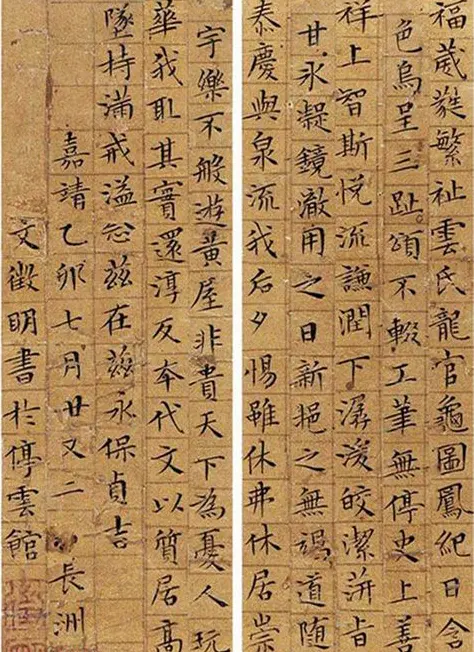 福葳蕤繁祉雲氏龍官龜圖鳳紀日含
色烏呈三趾頌不輟工筆無停史上善
祥上智斯悅流謙潤下潺湲皎潔蓱旨
甘氷凝鏡澈用之日新挹之無竭道隨
泰慶與泉流我后夕惕雖休弗休居崇
宇樂不般遊黃屋非貴天下為憂人玩
華我取其實還淳反本代文以質居高
墜持滿戒溢念茲在茲永保貞吉
嘉靖乙卯七月廿又二 長洲
文徵明書於停雲館